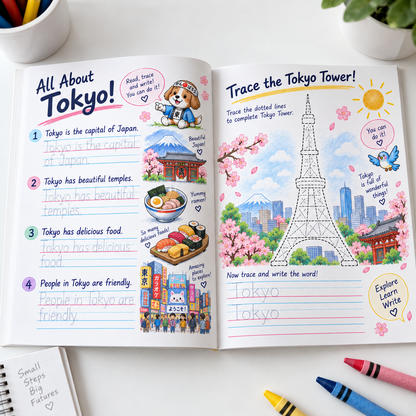 All About
Tokyo!
Read, trace
and write!
You can do it!
1 Tokyo is the capital of Japan.
Tokyo is the capital
of Japan.
Beautiful
Japan!
2 Tokyo has beautiful temples.
Tokyo has beautiful
temples.
Yummy
ramen!
3 Tokyo has delicious food.
Tokyo has delicious
food
So many
delicious foods!
4 People in Tokyo are friendly.
People in Tokyo are
friendly.
Amazing
places
to explore!
東京
カラオケ
ようこそ!
Trace the Tokyo Tower!
Trace the dotted lines
to complete Tokyo Tower.
You can
do it!
Tokyo
is full of
wonderful
things!
Now trace and write the word!
Tokyo
Tokyo
Explore
Learn
Write
Small
Steps
Big
Futures